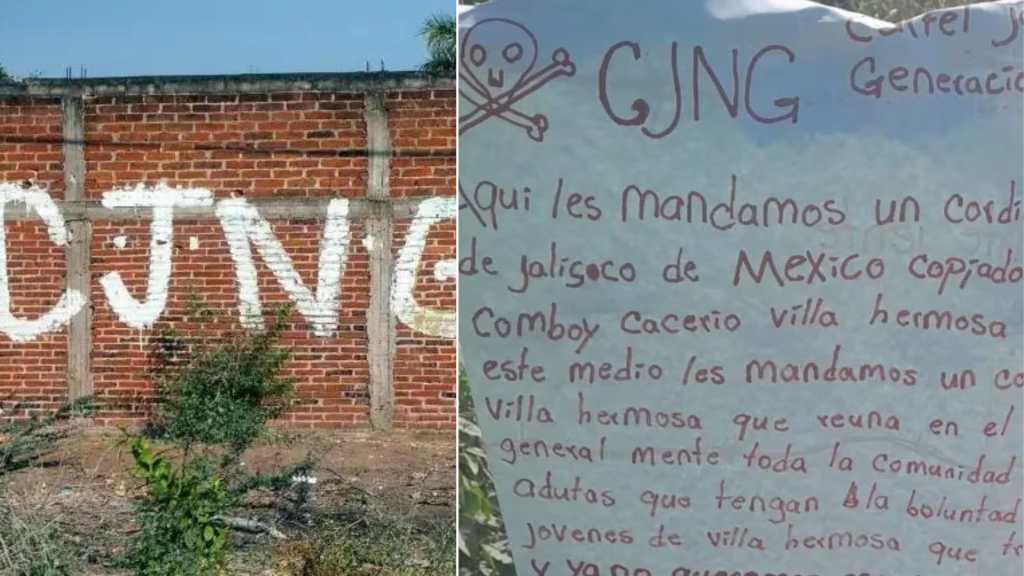 C.J.N.G
CJNG
Cartel J
Generacio
Aqui les mandamos un cordi
de jalisoco de Mexico copjado
Comboy cacerio villa hermosa
este medio les mandamos un co
villa hermosa que reuna en el
general mente toda la comunidad
adutas que tengan la boluntad
jovenes de villa hermosa que tr
y ya no queremos